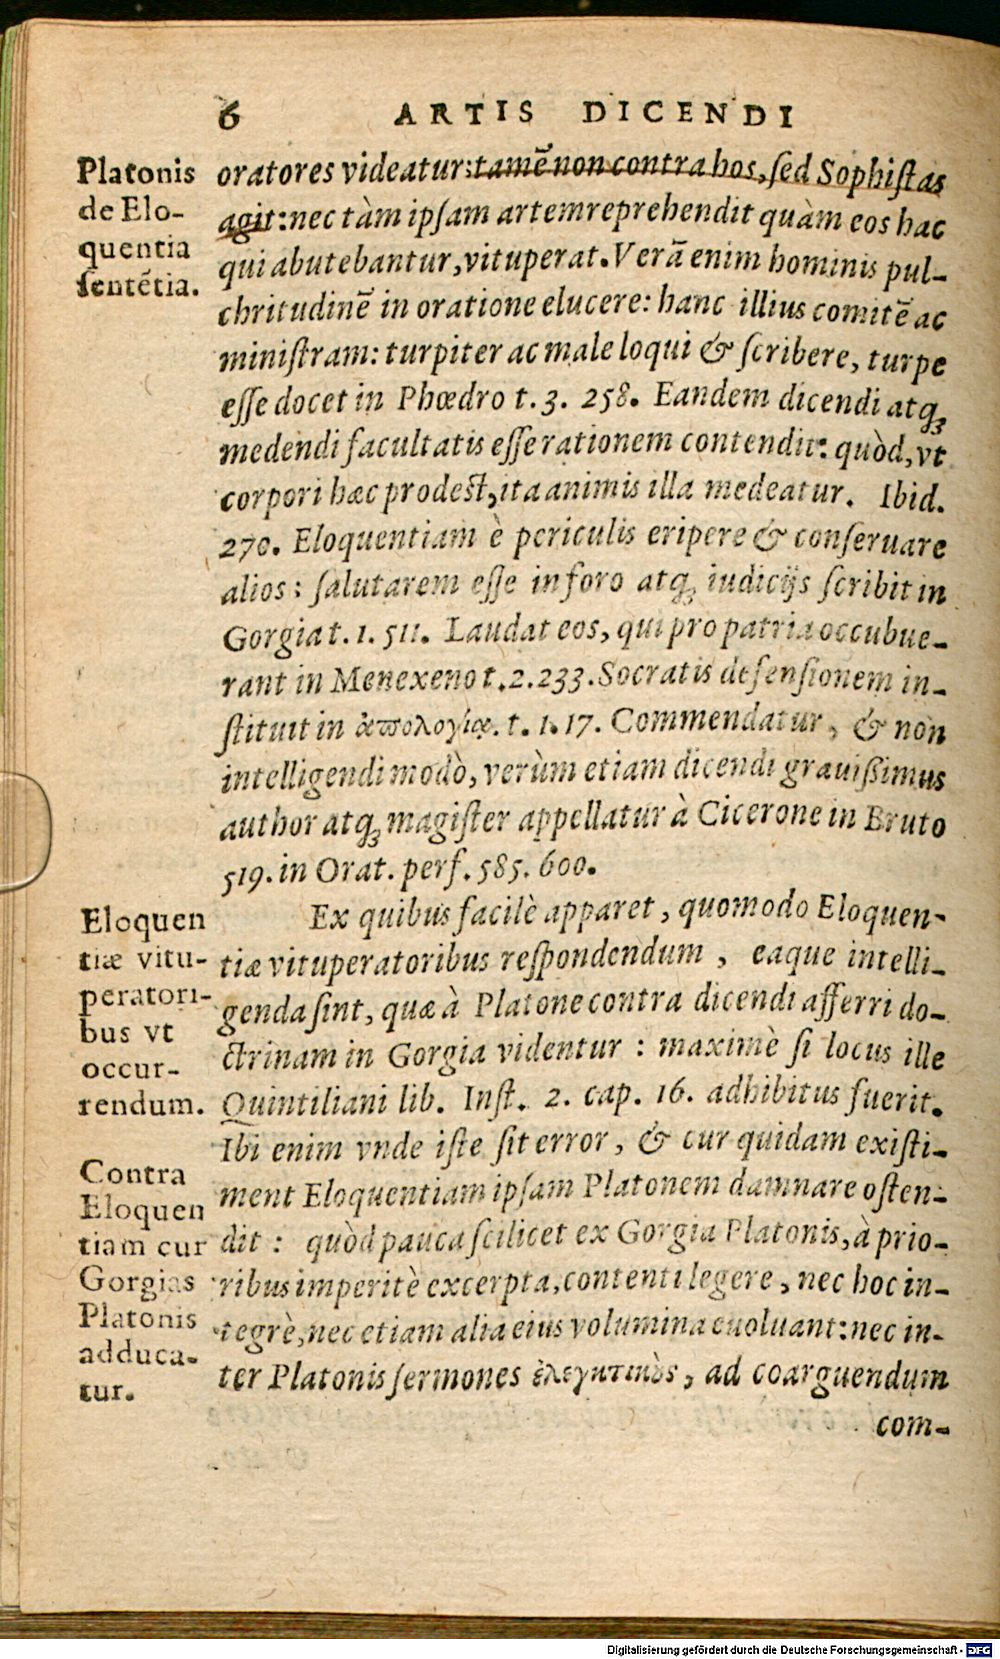 6 ARTIS DICENDI
Platonis
de Elo-
quentia
sentētia.
oratores videatur: tamē non contra hos, sed Sophistas
agit: nec tàm ipsam artem reprehendit quàm eos hac
qui abutebantur, vituperat. Verā enim hominis pul-
chritudinē in oratione elucere: hanc illius comitē ac
ministram: turpiter ac male loqui & scribere, turpe
esse docet in Phœdro t. 3. 258. Eandem dicendi atq;
medendi facultatis esse rationem contendit: quòd, vt
corpori hæc prodest, ita animis illa medeatur. Ibid.
270. Eloquentiam è periculis eripere & conseruare
alios: salutarem esse in foro atq; iudicijs scribit in
Gorgia t. 1. 511. Laudat eos, qui pro patria occubue-
rant in Menexeno t. 2. 233. Socratis defensionem in-
stituit in ἀπολογίᾳ. t. 1. 17. Commendatur, & non
intelligendi modò, verùm etiam dicendi grauißimus
author atq; magister appellatur à Cicerone in Bruto
519. in Orat. perf. 585. 600.
Eloquen
tiæ vitu-
peratori-
bus vt
occur-
rendum.
Ex quibus facilè apparet, quomodo Eloquen-
tiæ vituperatoribus respondendum, eaque intelli-
genda sint, quæ à Platone contra dicendi afferri do-
ctrinam in Gorgia videntur: maximè si locus ille
Quintiliani lib. Inst. 2. cap. 16. adhibitus fuerit.
Ibi enim vnde iste sit error, & cur quidam existi-
Contra
Eloquen
tiam cur
Gorgias
Platonis
adduca-
tur.
ment Eloquentiam ipsam Platonem damnare osten-
dit: quòd pauca scilicet ex Gorgia Platonis, à prio-
ribus imperitè excerpta, contenti legere, nec hoc in-
tegrè, nec etiam alia eius volumina euoluant: nec in-
ter Platonis sermones ἐλεγκτικοὺς, ad coarguendum
com-
Digitalisierung gefördert durch die Deutsche Forschungsgemeinschaft - DFG